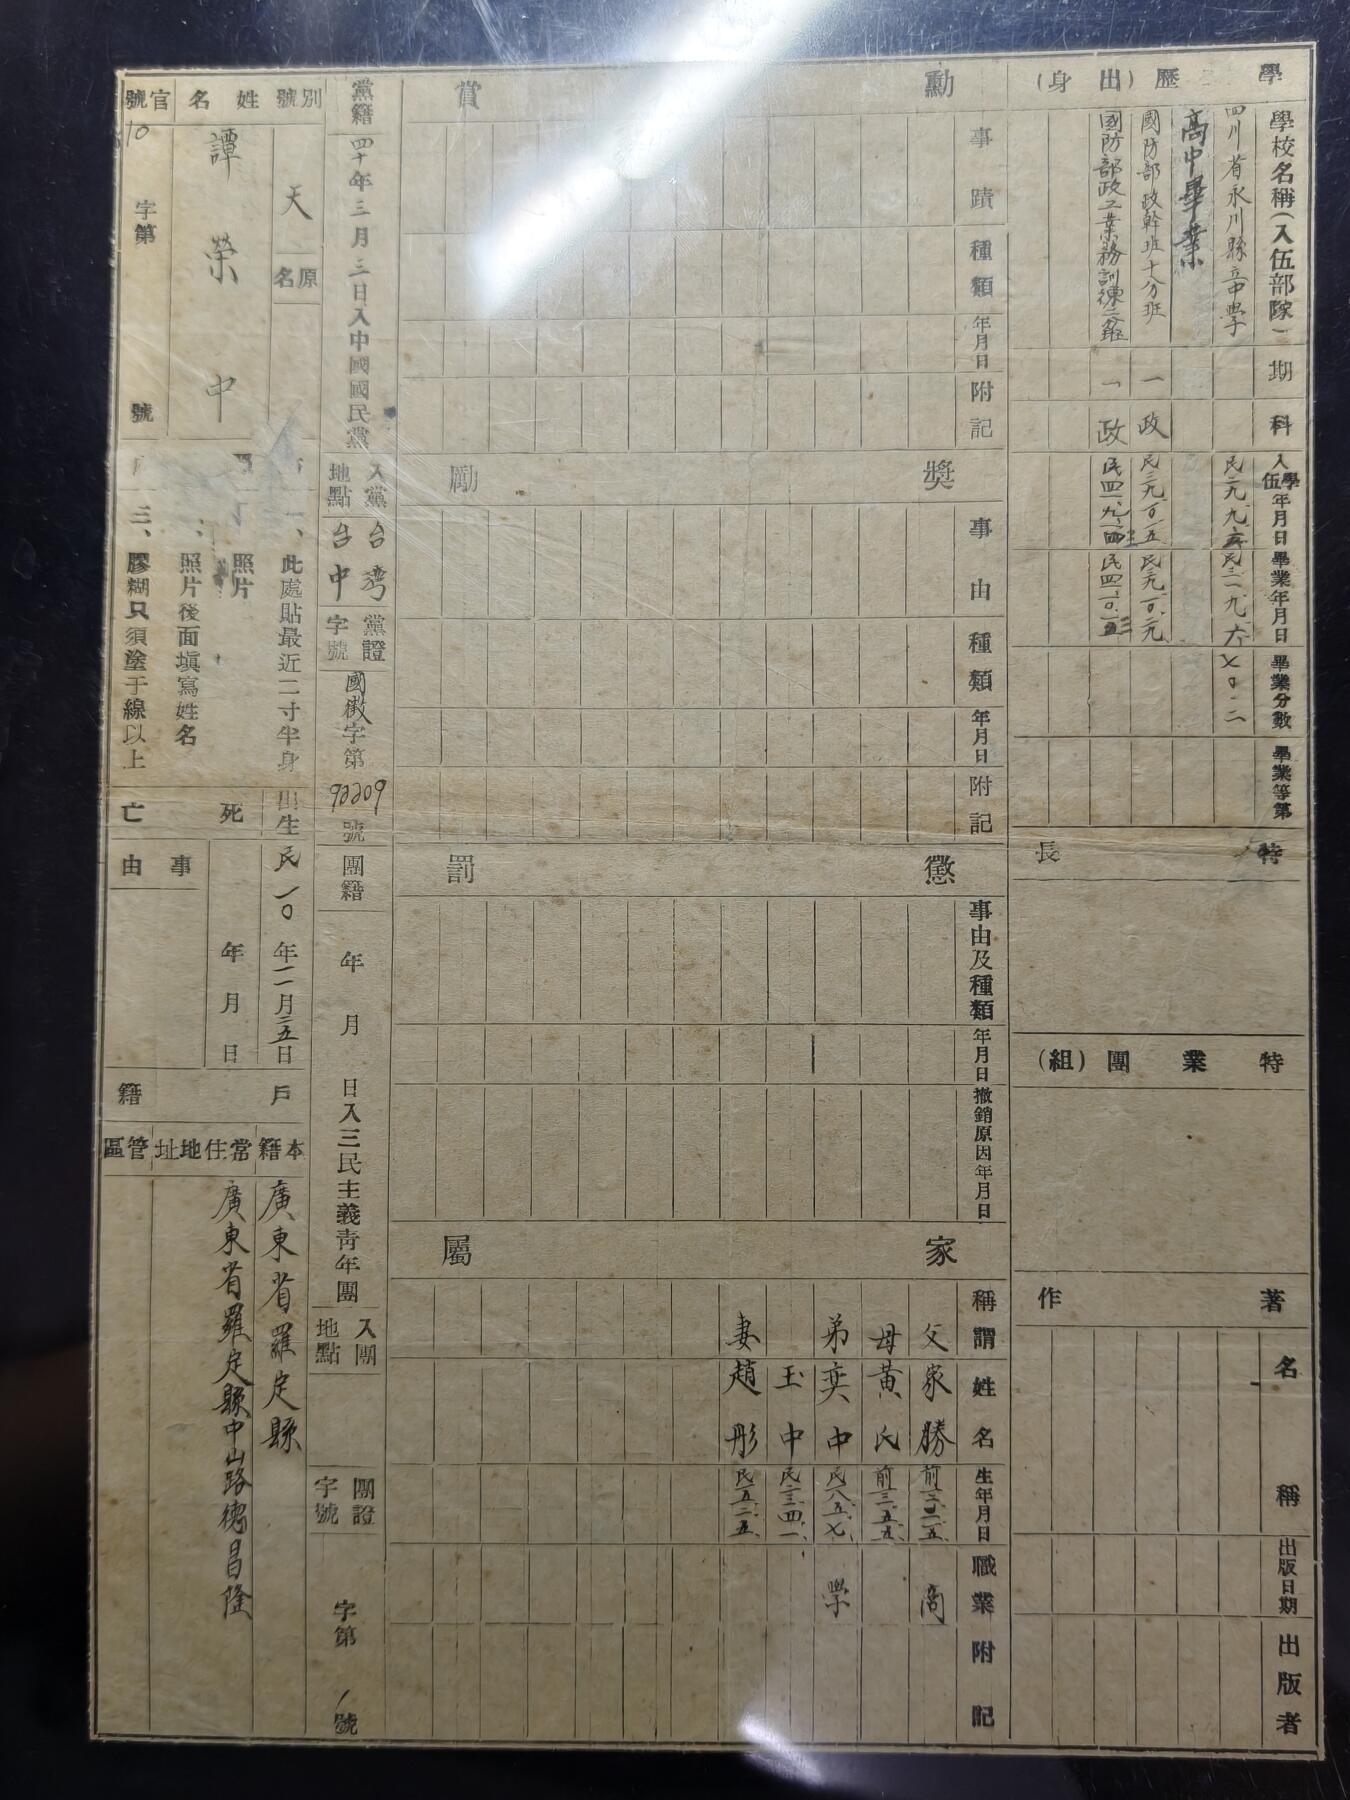 學歷(出身)
學校名稱(入伍部隊)
期
科
入學伍年月日
畢業年月日
畢業分數
畢業等第
四川省永川縣立中學
民二九、九、
民三一、九、六
七〇.二
高中畢業
國防部政幹班十分班
一
政
民三九、一〇、一五
民三九、一〇、二九
國防部政工業務訓練
一
政
特長
特業團(組)
著作
名稱
出版日期
出版者
勳賞
事蹟
種類
年月日
附記
獎勵
事由
種類
年月日
附記
懲罰
事由及種類
年月日
撤銷原因年月日
家屬
稱謂
姓名
生年月日
職業
附記
父
家勝
商
母
黃氏
前三、五、五、
弟
奕中
民八、五、七、
學
玉中
民三、四、一
妻
趙彤
民五、二、五、
黨籍
四十年三月三日入中國國民黨
入黨地點
台灣台中
黨證字號
國徵字第92209號
團籍
年月日入三民主義青年團
入團地點
團證字號
字第號
別號
天
原名
姓名
譚榮中
官號
10
字第號
一、此處貼最近二寸半身
照片
照片後面填寫姓名
三、膠糊只須塗于線以上
出生
民一〇年一一月二五日
死亡
年月日
事由
戶籍
本籍
廣東省羅定縣
常住地址
廣東省羅定縣中山路德昌隆
管區